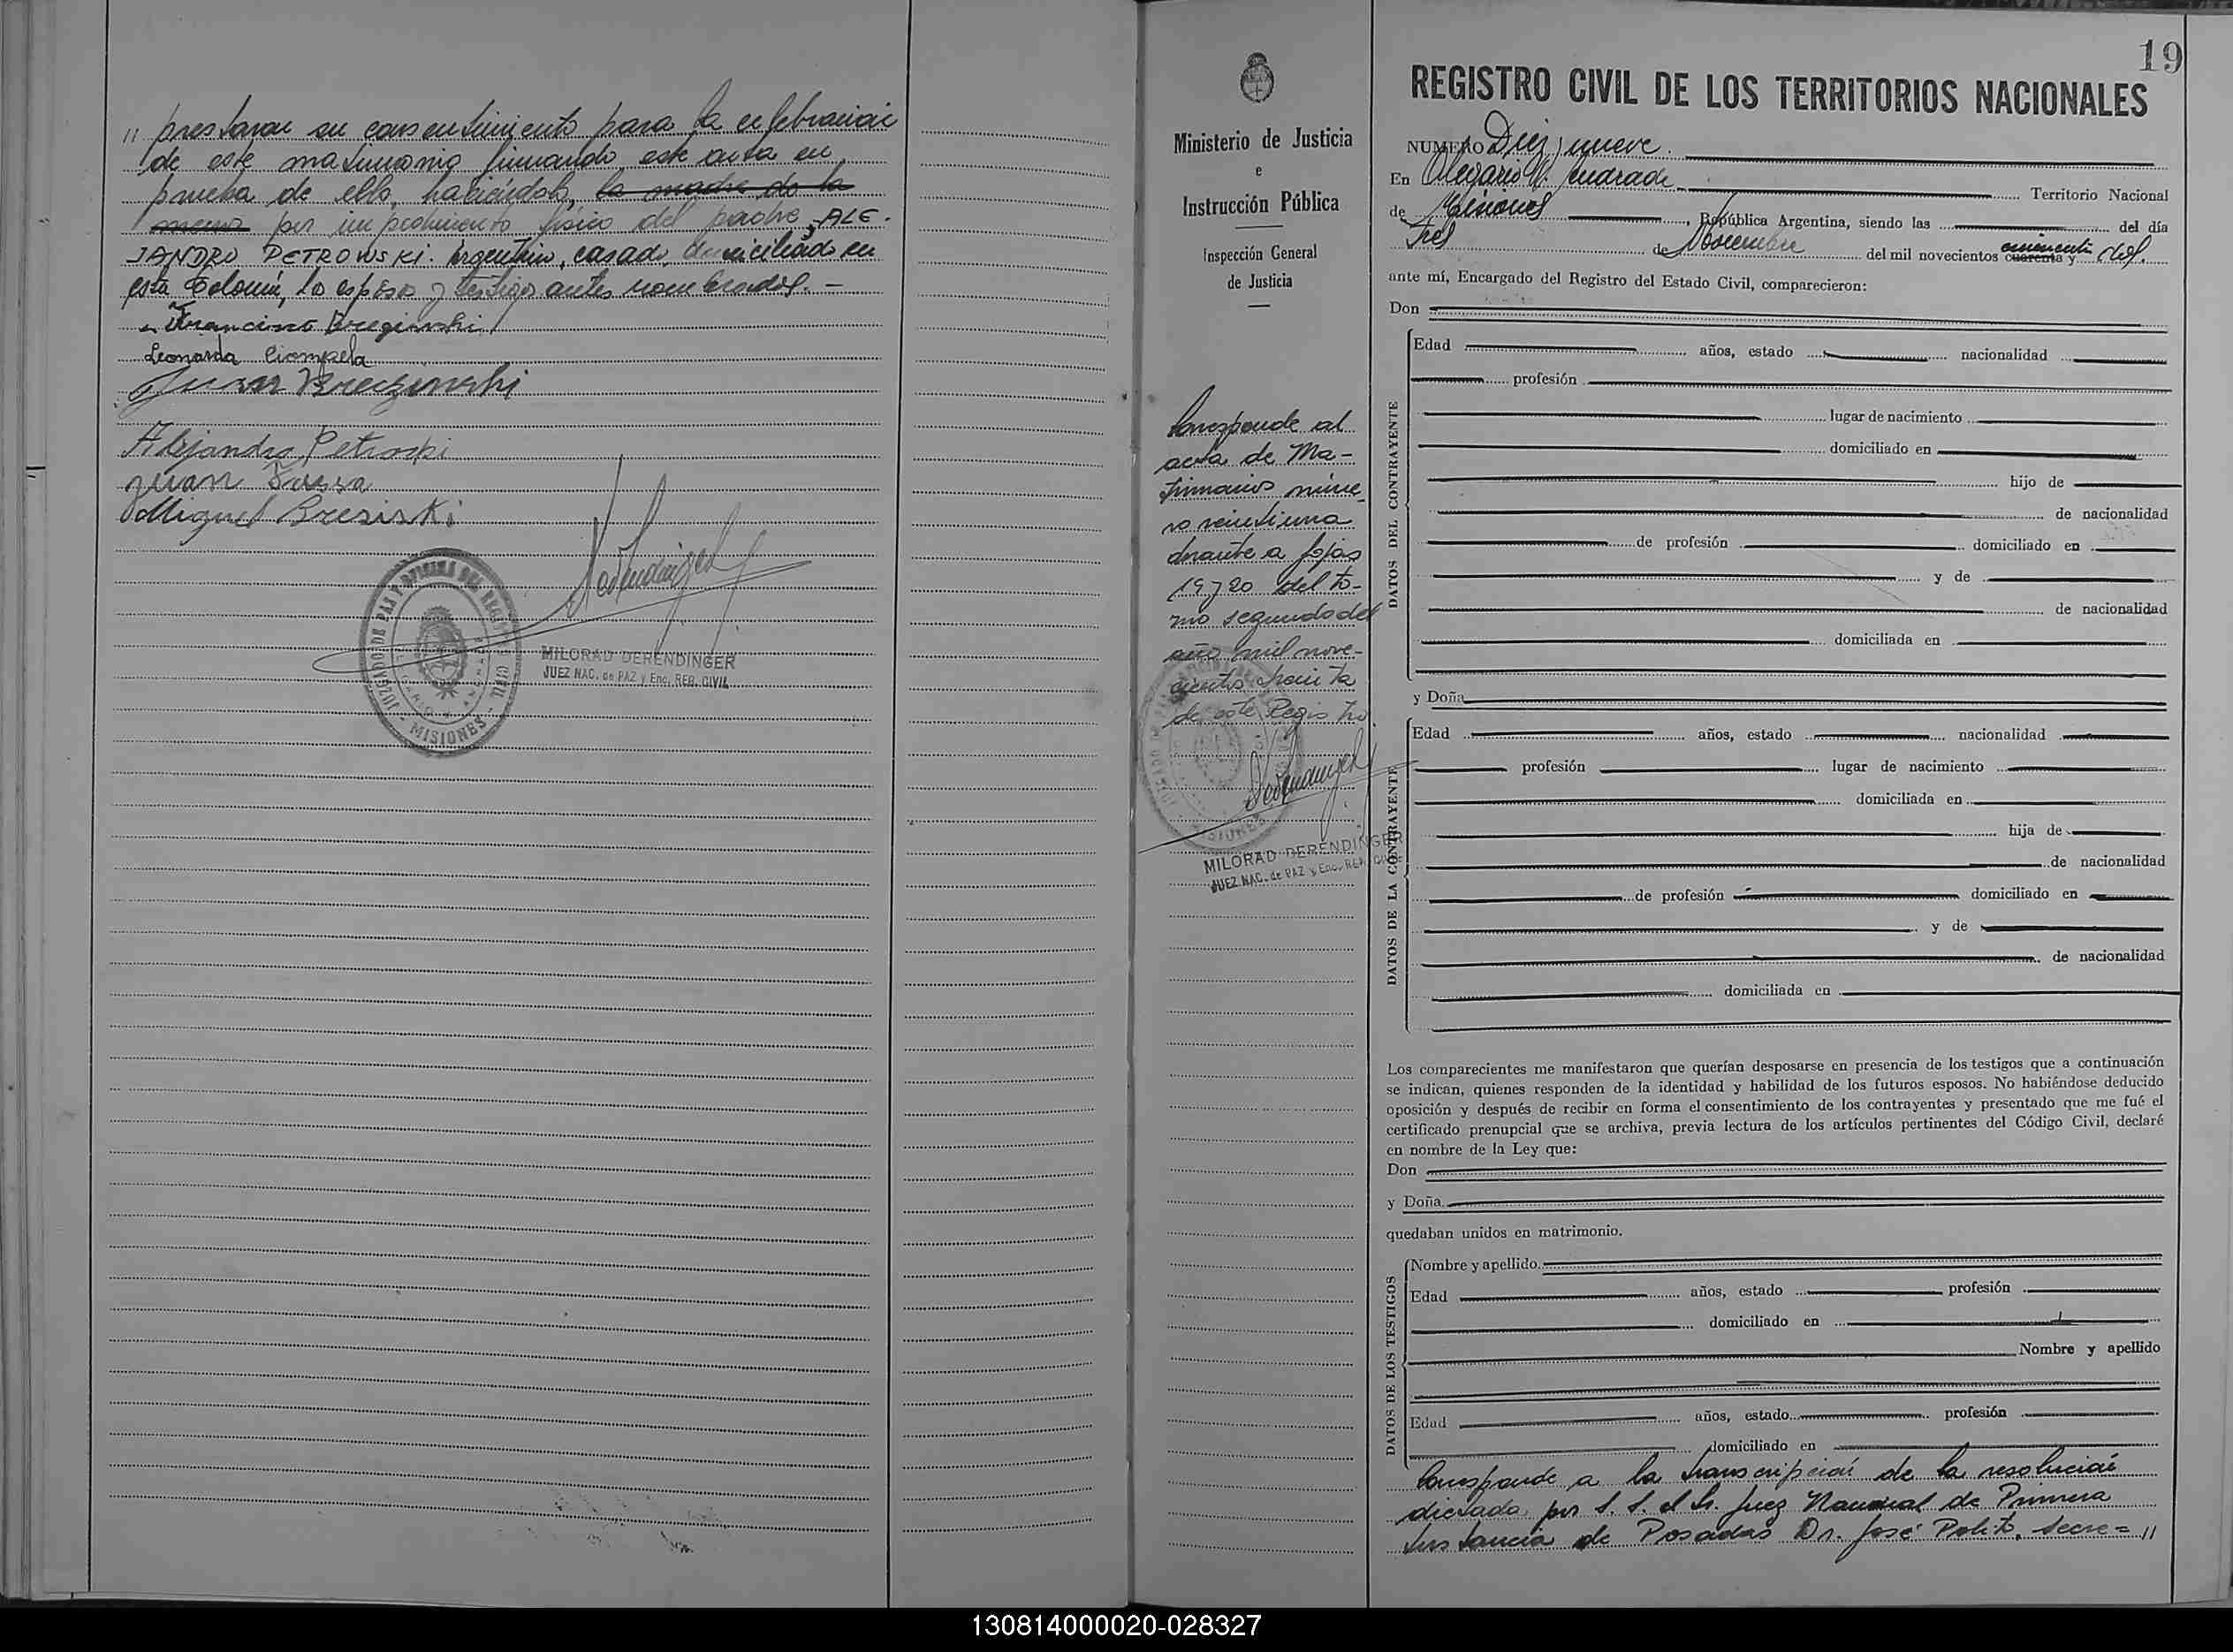 " prestaron su consentimiento para la celebración
de este matrimonio firmando este acta en
prueba de ello, haciéndolo, la madre de la
por impedimento físico del padre, ALE-
JANDRO PETROWSKI. Argentino, casado, domiciliado en
esta Colonia, los esposos y testigos antes nombrados. -
Francisco
Leonarda Ciompela
Juan
Alejandro Petroski
Juan Sussa
Miguel Bresiski
JUZGADO DE PAZ Y OFICINA DEL REGISTRO CIVIL
- MISIONES -
MILORAD DERENDINGER
JUEZ NAC. de PAZ y Enc. REG. CIVIL
Ministerio de Justicia
e
Instrucción Pública
Inspección General
de Justicia
Corresponde al
acta de Ma-
trimonios núme-
ro veintiuno
obrante a fojas
19 y 20 del to-
mo segundo del
año mil nove-
cientos treinta
de este Registro.
MISIONES
MILORAD DERENDINGER
JUEZ NAC. de PAZ y Enc. REG. CIVIL
19
REGISTRO CIVIL DE LOS TERRITORIOS NACIONALES
NUMERO Diez y nueve.
En Olegario V. Andrade Territorio Nacional
de Misiones, República Argentina, siendo las del día
tres de Noviembre del mil novecientos cuarenta y cincuenta y dos.
ante mí, Encargado del Registro del Estado Civil, comparecieron:
Don
DATOS DEL CONTRAYENTE
Edad años, estado nacionalidad
profesión
lugar de nacimiento
domiciliado en
hijo de
de nacionalidad
de profesión domiciliado en
y de
de nacionalidad
domiciliada en
y Doña
DATOS DE LA CONTRAYENTE
Edad años, estado nacionalidad
profesión lugar de nacimiento
domiciliada en
hija de
de nacionalidad
de profesión domiciliado en
y de
de nacionalidad
domiciliada en
Los comparecientes me manifestaron que querían desposarse en presencia de los testigos que a continuación
se indican, quienes responden de la identidad y habilidad de los futuros esposos. No habiéndose deducido
oposición y después de recibir en forma el consentimiento de los contrayentes y presentado que me fué el
certificado prenupcial que se archiva, previa lectura de los artículos pertinentes del Código Civil, declaré
en nombre de la Ley que:
Don
y Doña
quedaban unidos en matrimonio.
DATOS DE LOS TESTIGOS
Nombre y apellido
Edad años, estado profesión
domiciliado en
Nombre y apellido
Edad años, estado profesión
domiciliado en
Corresponde a la transcripción de la resolución
dictada por S. S. el Sr. Juez Nacional de Primera
Instancia de Posadas Dr. José Polito, Secre= "
130814000020-028327